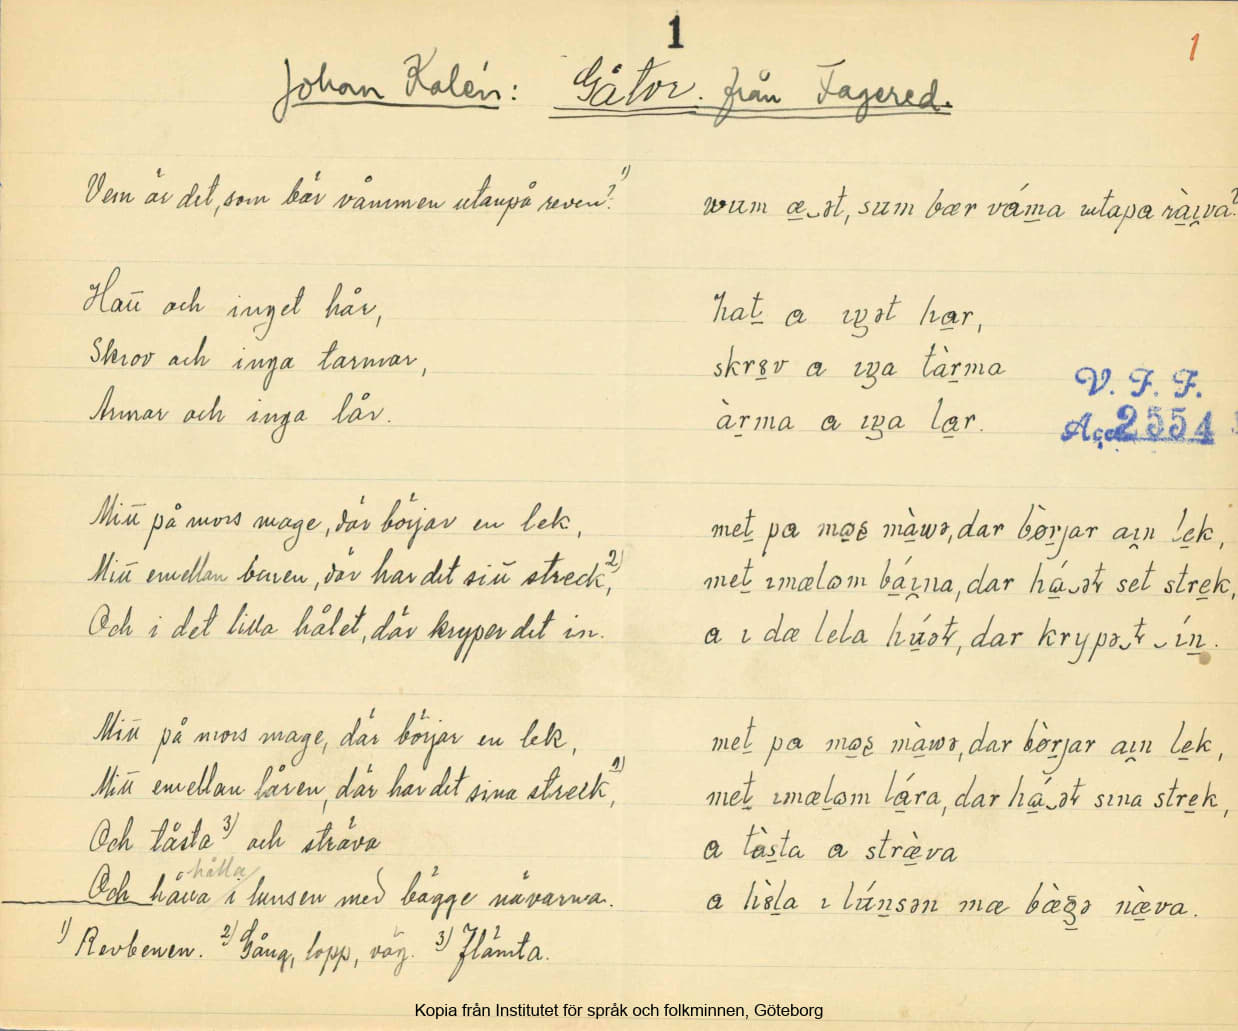 1
1
Johan Kalén: Gåtor. från Fagered.
Vem är det, som bär våmmen utanpå reven?¹⁾
wum æ‿ət, sum bær váma utapa ràıva?
Hatt och inget hår,
hat a ıŋət har,
Skrov och inga tarmar,
skrɤv a ıŋa tàrma
Armar och inga lår.
àrma a ıŋa lar.
V. F. F.
Acc. 2554
Mitt på mors mage, där börjar en lek,
met pa mɷʂ màwə, dar bòrjar aın lek,
Mitt emellan benen, där har det sitt streck,²⁾
met ımælɷm báına, dar há‿ət set strek,
Och i det lilla hålet, där kryper det in.
a ı dæ lela húət, dar krypə‿t‿ín.
Mitt på mors mage, där börjar en lek,
met pa mɷʂ màwə, dar bòrjar aın lek,
Mitt emellan låren, där har det sina streck,²⁾
met ımælɷm lára, dar há‿ət sına strek,
Och tåsta³⁾ och sträva
a tàsta a stræ̀va
hålla
Och hålla i lunsen med bägge nävarna.
a hɤ̀la ı lúnsən mæ bæ̀gə næ̀va.
¹⁾ Revbenen. ²⁾ Gång, lopp, väg. ³⁾ Flämta.
Kopia från Institutet för språk och folkminnen, Göteborg